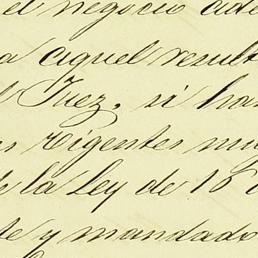 el negocio ad
a aquel result
l Juez, si ha
s vigentes mu
de la Ley de 18 d
te y mandado